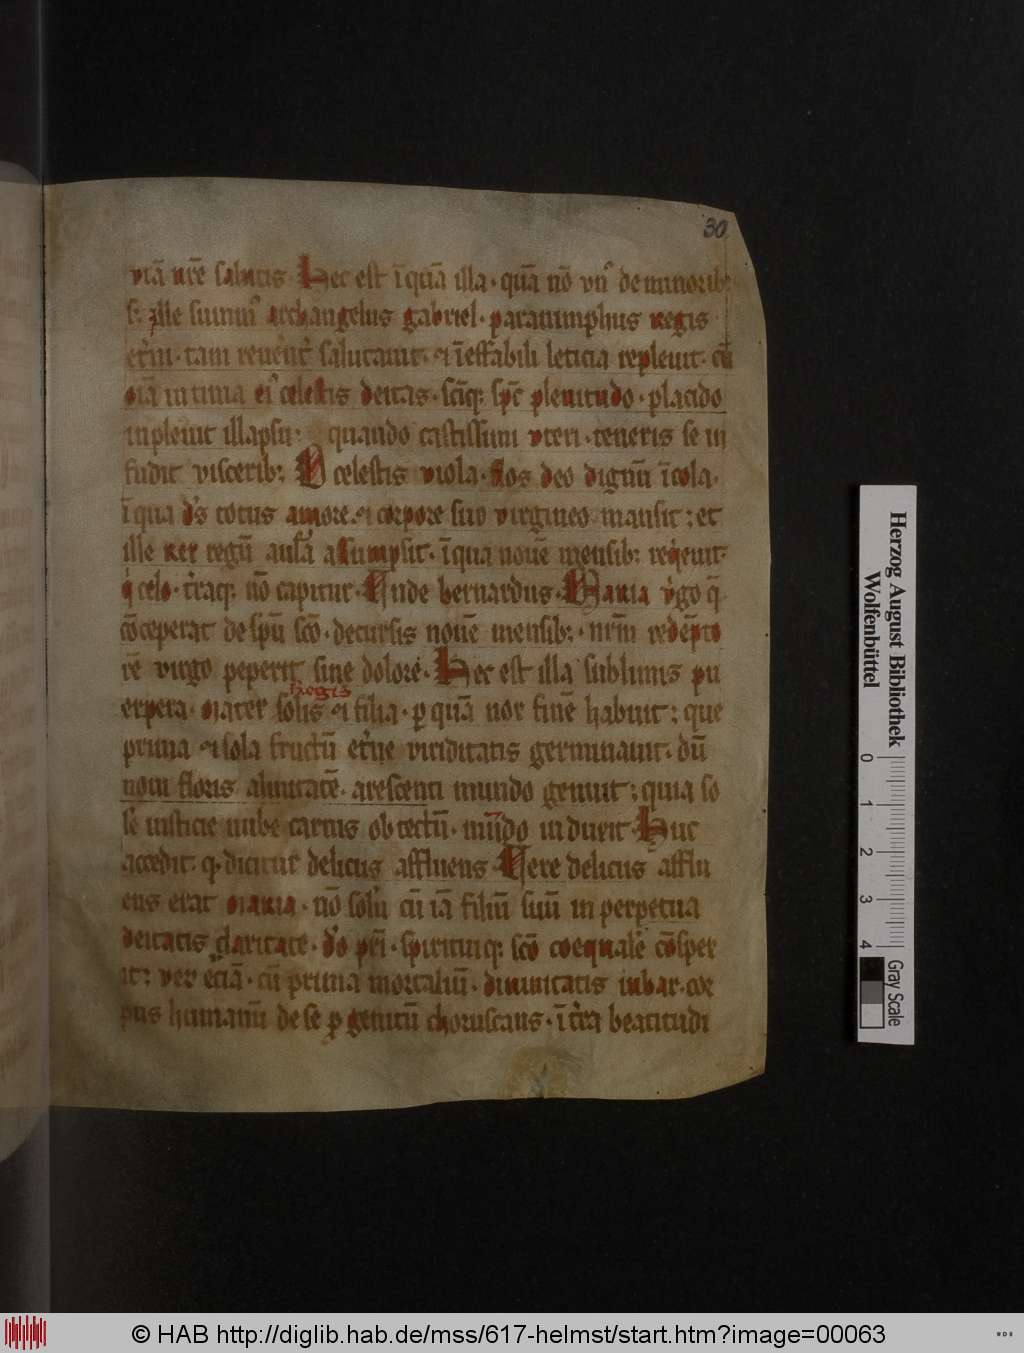 30
viā nr̄e salutis · Hec est ī quā illa · quā nō vn᷒ de minorib᷒
s; ille summ᷒ archangelus gabriel · paranimphus regis
et̄ni · tam reuēnt̄ salutauit · ⁊ ī effabili leticia repleuit · cū
oīa intima ei᷒ celestis deitas · sc̄iq; sp̄c plenitudo · placido
inpleuit illapsu; quando castissimi vteri · teneris se in
fudit viscerib; O celestis viola · flos deo dignū īcola ·
ī qua d̄s totus amore · ⁊ corpore suo virgineo mansit ; et
ille rex regū aulā assumpsit · ī qua nouē mensib; req̇euit ·
q̇ celo · t̄raq; nō capitur · Unde bernardus · Maria v̇go q̄
cōceperat de sp̄u sc̄o · decursis nouē mensib; · nr̄m redēpto
rē virgo peperit sine dolore · Hec est illa sublimis pu
regis
erpera · mater solis ⁊ filia · ꝑ quā nox finē habuit ; que
prima ⁊ sola fructū et̄ne viriditatis germinauit · dū
noui floris alīnitatē · arescenti mundo genuit ; quia so
le iusticie nube carnis obtectū · mūdo induxit · Huc
accedit · ꝙ dicitur deliciis affluens · Vere deliciis afflu
ens erat maria · nō solū cū iā filiū suū in perpetua
deitatis claritate · d̄o pr̄i · spirituiq; sc̄o coequalē cōsper
it; ver eciā · cū prima mortaliū · diuinitatis iubar · cor
pus humanū de se ꝓgenitū choruscans · ī t̄ra beatitudi
Herzog August Bibliothek
Wolfenbüttel
0 1 2 3 4
Gray Scale
© HAB http://diglib.hab.de/mss/617-helmst/start.htm?image=00063